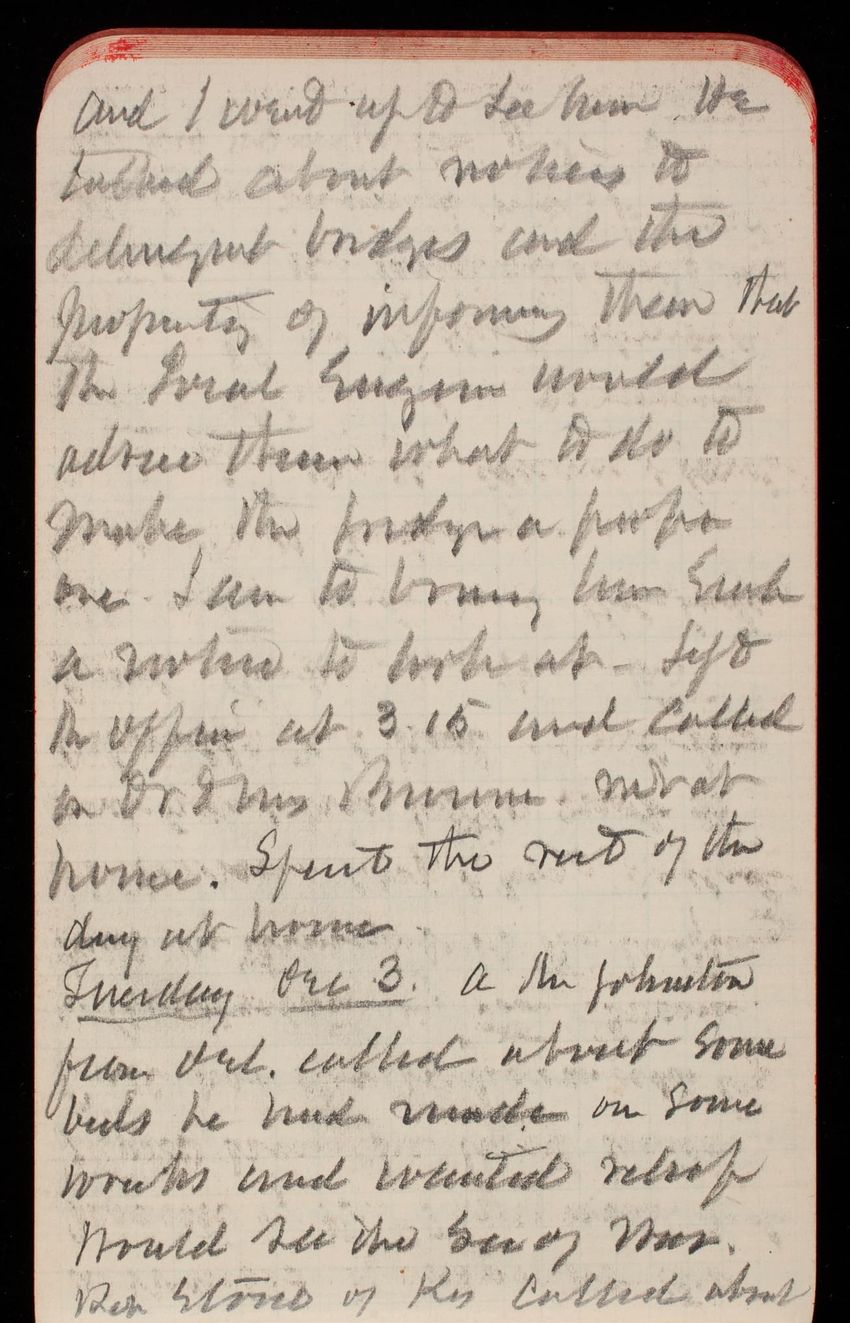 and I went up to see him. We
talked about notices to
delinquent bridges and the
propriety of informing them that
the Local Engineer would
advise them what to do to
make the bridge a proper
one. I am to bring him such
a notice to look at - Left
the office at 3.15 and called
on Dr & Mrs not at
home. Spent the rest of the
day at home
Tuesday Dec 3. A Mr Johnston
from Del. called about some
bids he had made on some
works and wanted relief
Would see the Sec of War.
Rep Stone of Ky called about